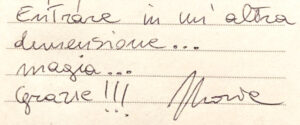 Entrare in un'altra
dimensione...
magia...
Grazie!!!